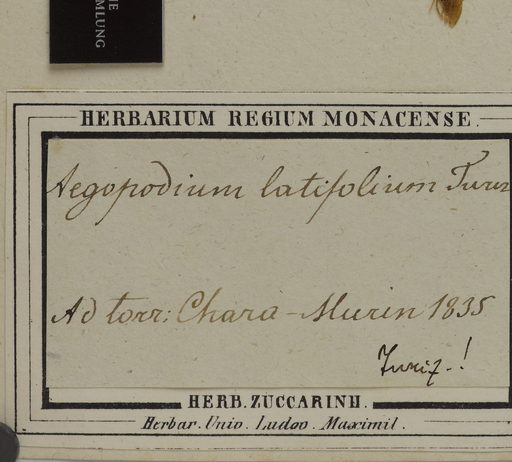 MLUNG
HERBARIUM REGIUM MONACENSE.
Aegopodium latifolium Turcz
Ad torr: Chara-Murin 1835
Turcz.!
HERB. ZUCCARINII.
Herbar. Univ. Ludov. Maximil.